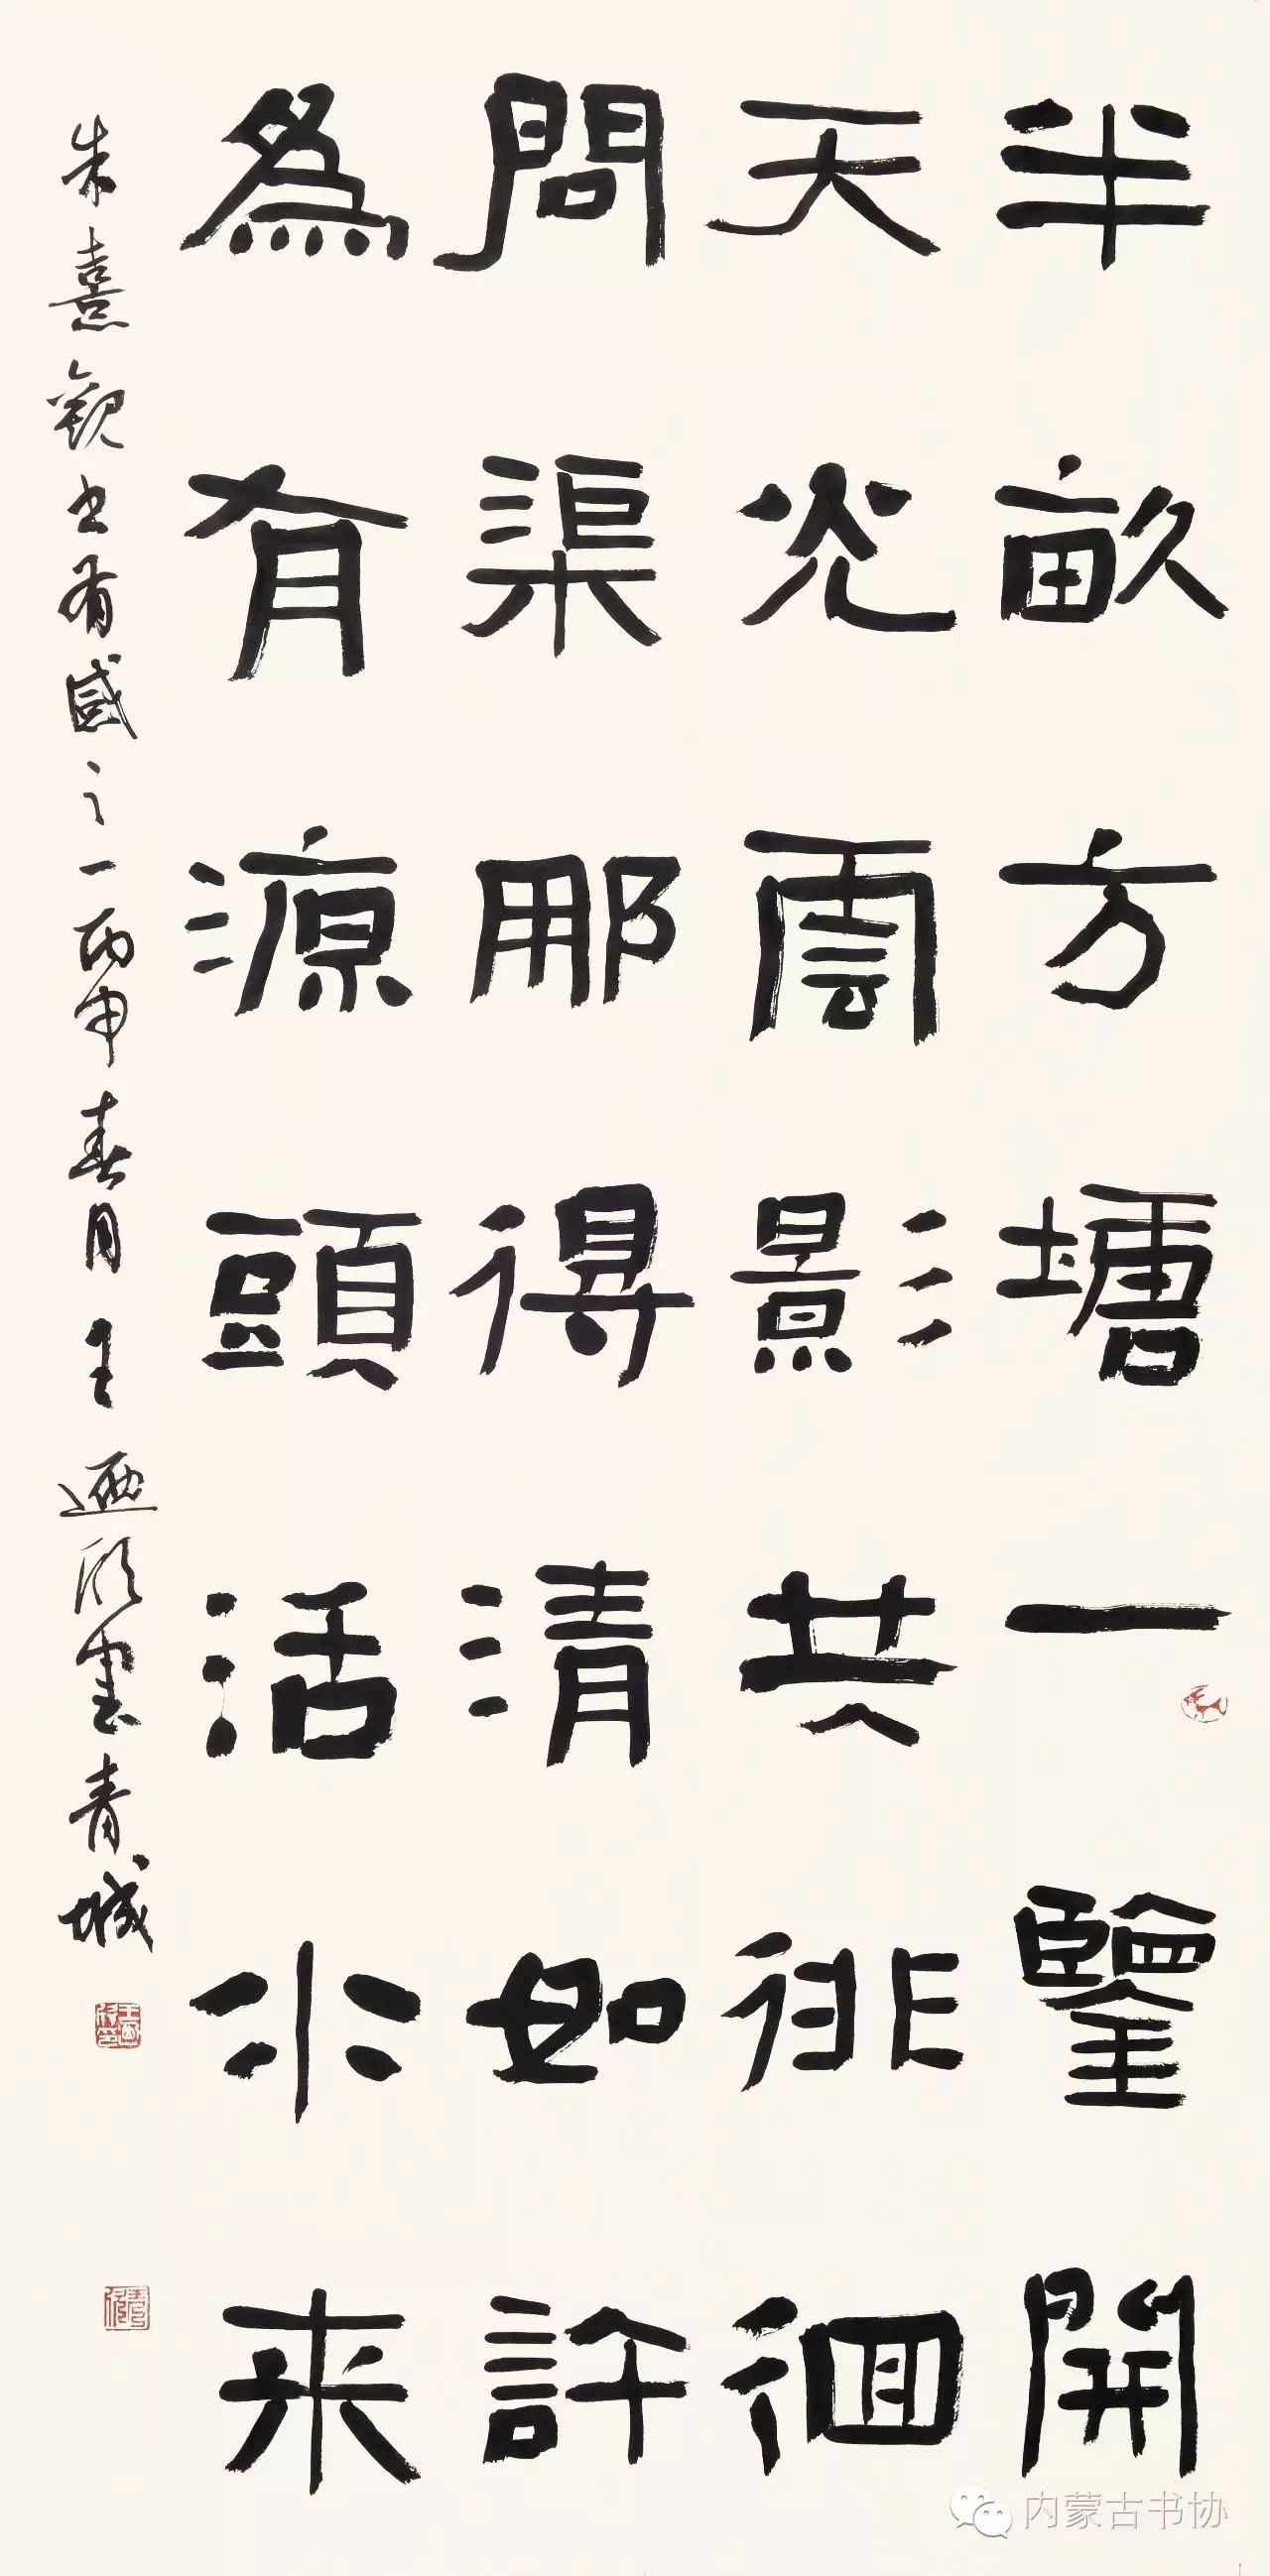 半畝方塘一鑒開
天光雲影共徘徊
問渠那得清如許
為有源頭活水来
朱熹觀書有感之一丙申春月王逦欣書青城
内蒙古书协